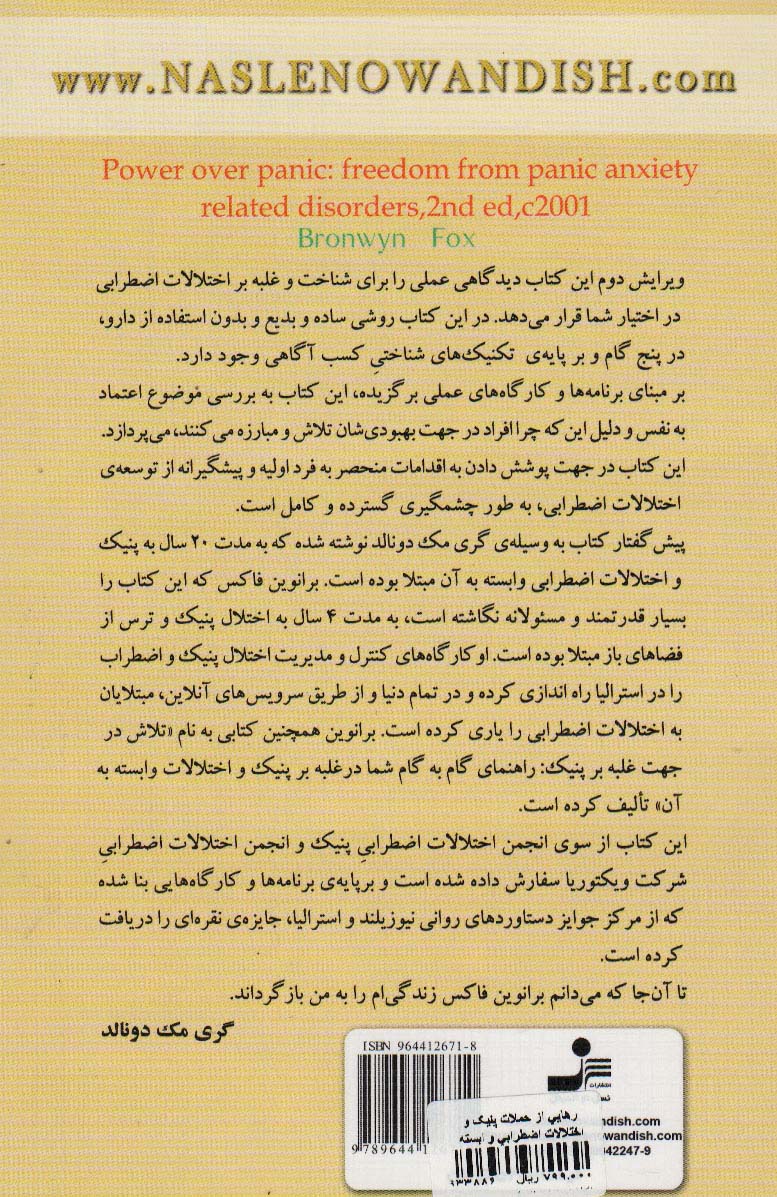 www.NASLENOWANDISH.com
Power over panic: freedom from panic anxiety
related disorders,2nd ed,c2001
Bronwyn Fox
ویرایش دوم این کتاب دیدگاهی عملی را برای شناخت و غلبه بر اختلالات اضطرابی
در اختیار شما قرار می‌دهد. در این کتاب روشی ساده و بدیع و بدون استفاده از دارو،
در پنج گام و بر پایه‌ی تکنیک‌های شناختیِ کسب آگاهی وجود دارد.
بر مبنای برنامه‌ها و کارگاه‌های عملی برگزیده، این کتاب به بررسی موضوع اعتماد
به نفس و دلیل این که چرا افراد در جهت بهبودی‌شان تلاش و مبارزه می‌کنند، می‌پردازد.
این کتاب در جهت پوشش دادن به اقدامات منحصر به فرد اولیه و پیشگیرانه از توسعه‌ی
اختلالات اضطرابی، به طور چشمگیری گسترده و کامل است.
پیش‌گفتار کتاب به وسیله‌ی گری مک دونالد نوشته شده که به مدت ۲۰ سال به پنیک
و اختلالات اضطرابی وابسته به آن مبتلا بوده است. برانوین فاکس که این کتاب را
بسیار قدرتمند و مسئولانه نگاشته است، به مدت ۴ سال به اختلال پنیک و ترس از
فضاهای باز مبتلا بوده است. او کارگاه‌های کنترل و مدیریت اختلال پنیک و اضطراب
را در استرالیا راه اندازی کرده و در تمام دنیا و از طریق سرویس‌های آنلاین، مبتلایان
به اختلالات اضطرابی را یاری کرده است. برانوین همچنین کتابی به نام «تلاش در
جهت غلبه بر پنیک: راهنمای گام به گام شما درغلبه بر پنیک و اختلالات وابسته به
آن» تألیف کرده است.
این کتاب از سوی انجمن اختلالات اضطرابیِ پنیک و انجمن اختلالات اضطرابیِ
شرکت ویکتوریا سفارش داده شده است و برپایه‌ی برنامه‌ها و کارگاه‌هایی بنا شده
که از مرکز جوایز دستاوردهای روانی نیوزیلند و استرالیا، جایزه‌ی نقره‌ای را دریافت
کرده است.
تا آن‌جا که می‌دانم برانوین فاکس زندگی‌ام را به من بازگرداند.
گری مک دونالد
ISBN 964412671-8
9 789644 1
انتشارات
ndish.com
owandish.com
042247-9
رهایی از حملات پنیک و
اختلالات اضطرابی و ابسته
۹۳۳۸۸۶ ۷۹۹.۰۰۰ ریال